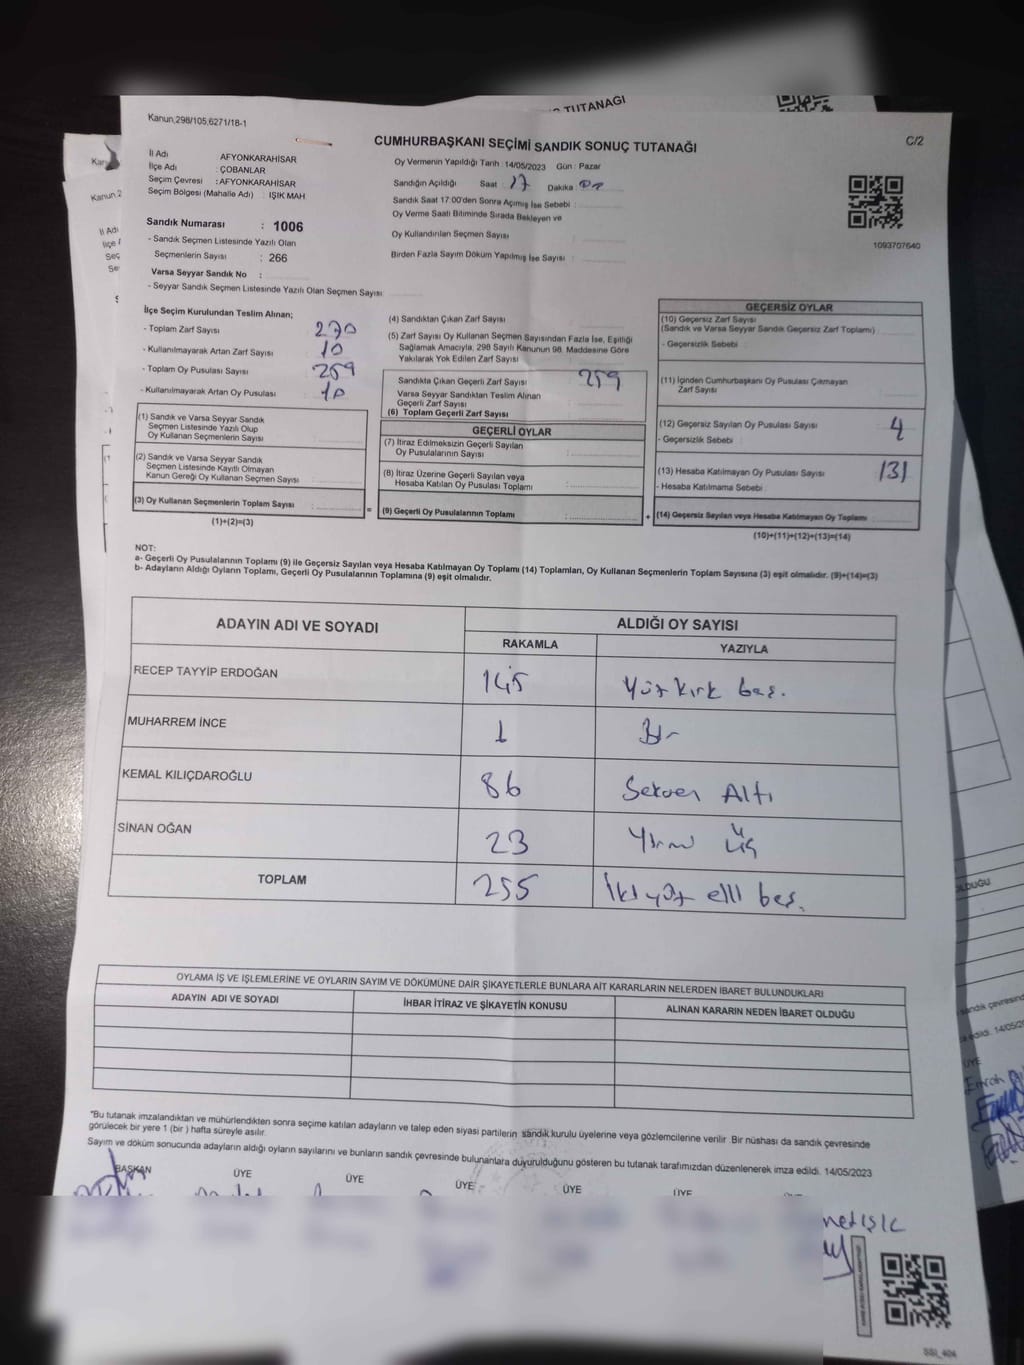 TUTANAĞI
Kanun,298/105,6271/18-1
C/2
CUMHURBAŞKANI SEÇİMİ SANDIK SONUÇ TUTANAĞI
İl Adı AFYONKARAHİSAR
İlçe Adı : ÇOBANLAR
Seçim Çevresi : AFYONKARAHİSAR
Seçim Bölgesi (Mahalle Adı) : IŞIK MAH
Oy Vermenin Yapıldığı Tarih : 14/05/2023 Gün : Pazar
Sandığın Açıldığı Saat : 17 Dakika
Sandık Saat 17:00'den Sonra Açımış İse Sebebi :
Oy Verme Saati Bitiminde Sırada Bekleyen ve
Oy Kullandırılan Seçmen Sayısı :
Birden Fazla Sayım Döküm Yapılmış İse Sayısı :
1093707640
Sandık Numarası : 1006
- Sandık Seçmen Listesinde Yazılı Olan
Seçmenlerin Sayısı : 266
Varsa Seyyar Sandık No :
- Seyyar Sandık Seçmen Listesinde Yazılı Olan Seçmen Sayısı:
İlçe Seçim Kurulundan Teslim Alınan;
- Toplam Zarf Sayısı 270
- Kullanılmayarak Artan Zarf Sayısı 10
- Toplam Oy Pusulası Sayısı 259
- Kullanılmayarak Artan Oy Pusulası 10
(1) Sandık ve Varsa Seyyar Sandık
Seçmen Listesinde Yazılı Olup
Oy Kullanan Seçmenlerin Sayısı :
(2) Sandık ve Varsa Seyyar Sandık
Seçmen Listesinde Kayıtlı Olmayan
Kanun Gereği Oy Kullanan Seçmen Sayısı :
(3) Oy Kullanan Seçmenlerin Toplam Sayısı :
(1)+(2)=(3)
(4) Sandıktan Çıkan Zarf Sayısı :
(5) Zarf Sayısı Oy Kullanan Seçmen Sayısından Fazla İse, Eşitliği
Sağlamak Amacıyla; 298 Sayılı Kanunun 98. Maddesine Göre
Yakılarak Yok Edilen Zarf Sayısı :
Sandıkta Çıkan Geçerli Zarf Sayısı : 259
Varsa Seyyar Sandıktan Teslim Alınan
Geçerli Zarf Sayısı :
(6) Toplam Geçerli Zarf Sayısı
=
GEÇERLİ OYLAR
(7) İtiraz Edilmeksizin Geçerli Sayılan
Oy Pusulalarının Sayısı :
(8) İtiraz Üzerine Geçerli Sayılan veya
Hesaba Katılan Oy Pusulası Toplamı :
(9) Geçerli Oy Pusulalarının Toplamı :
+
GEÇERSİZ OYLAR
(10) Geçersiz Zarf Sayısı
(Sandık ve Varsa Seyyar Sandık Geçersiz Zarf Toplamı)
- Geçersizlik Sebebi :
(11) İçinden Cumhurbaşkanı Oy Pusulası Çıkmayan
Zarf Sayısı :
(12) Geçersiz Sayılan Oy Pusulası Sayısı 4
- Geçersizlik Sebebi :
(13) Hesaba Katılmayan Oy Pusulası Sayısı 131
- Hesaba Katılmama Sebebi
(14) Geçersiz Sayılan veya Hesaba Katılmayan Oy Toplamı
(10)+(11)+(12)+(13)=(14)
NOT:
a- Geçerli Oy Pusulalarının Toplamı (9) ile Geçersiz Sayılan veya Hesaba Katılmayan Oy Toplamı (14) Toplamları, Oy Kullanan Seçmenlerin Toplam Sayısına (3) eşit olmalıdır. (9)+(14)=(3)
b- Adayların Aldığı Oyların Toplamı, Geçerli Oy Pusulalarının Toplamına (9) eşit olmalıdır.
ADAYIN ADI VE SOYADI ALDIĞI OY SAYISI
RAKAMLA YAZIYLA
RECEP TAYYİP ERDOĞAN 145 Yüz kırk beş.
MUHARREM İNCE 1 Bir
KEMAL KILIÇDAROĞLU 86 Seksen Altı
SİNAN OĞAN 23 Yirmi üç
TOPLAM 255 İki yüz elli beş.
OYLAMA İŞ VE İŞLEMLERİNE VE OYLARIN SAYIM VE DÖKÜMÜNE DAİR ŞİKAYETLERLE BUNLARA AİT KARARLARIN NELERDEN İBARET BULUNDUKLARI
ADAYIN ADI VE SOYADI İHBAR İTİRAZ VE ŞİKAYETİN KONUSU ALINAN KARARIN NEDEN İBARET OLDUĞU
*Bu tutanak imzalandıktan ve mühürlendikten sonra seçime katılan adayların ve talep eden siyasi partilerin sandık kurulu üyelerine veya gözlemcilerine verilir. Bir nüshası da sandık çevresinde
görülecek bir yere 1 (bir) hafta süreyle asılır.
Sayım ve döküm sonucunda adayların aldığı oyların sayılarını ve bunların sandık çevresinde bulunanlara duyurulduğunu gösteren bu tutanak tarafımızdan düzenlenerek imza edildi. 14/05/2023
BAŞKAN ÜYE ÜYE ÜYE ÜYE ÜYE
SSI_404